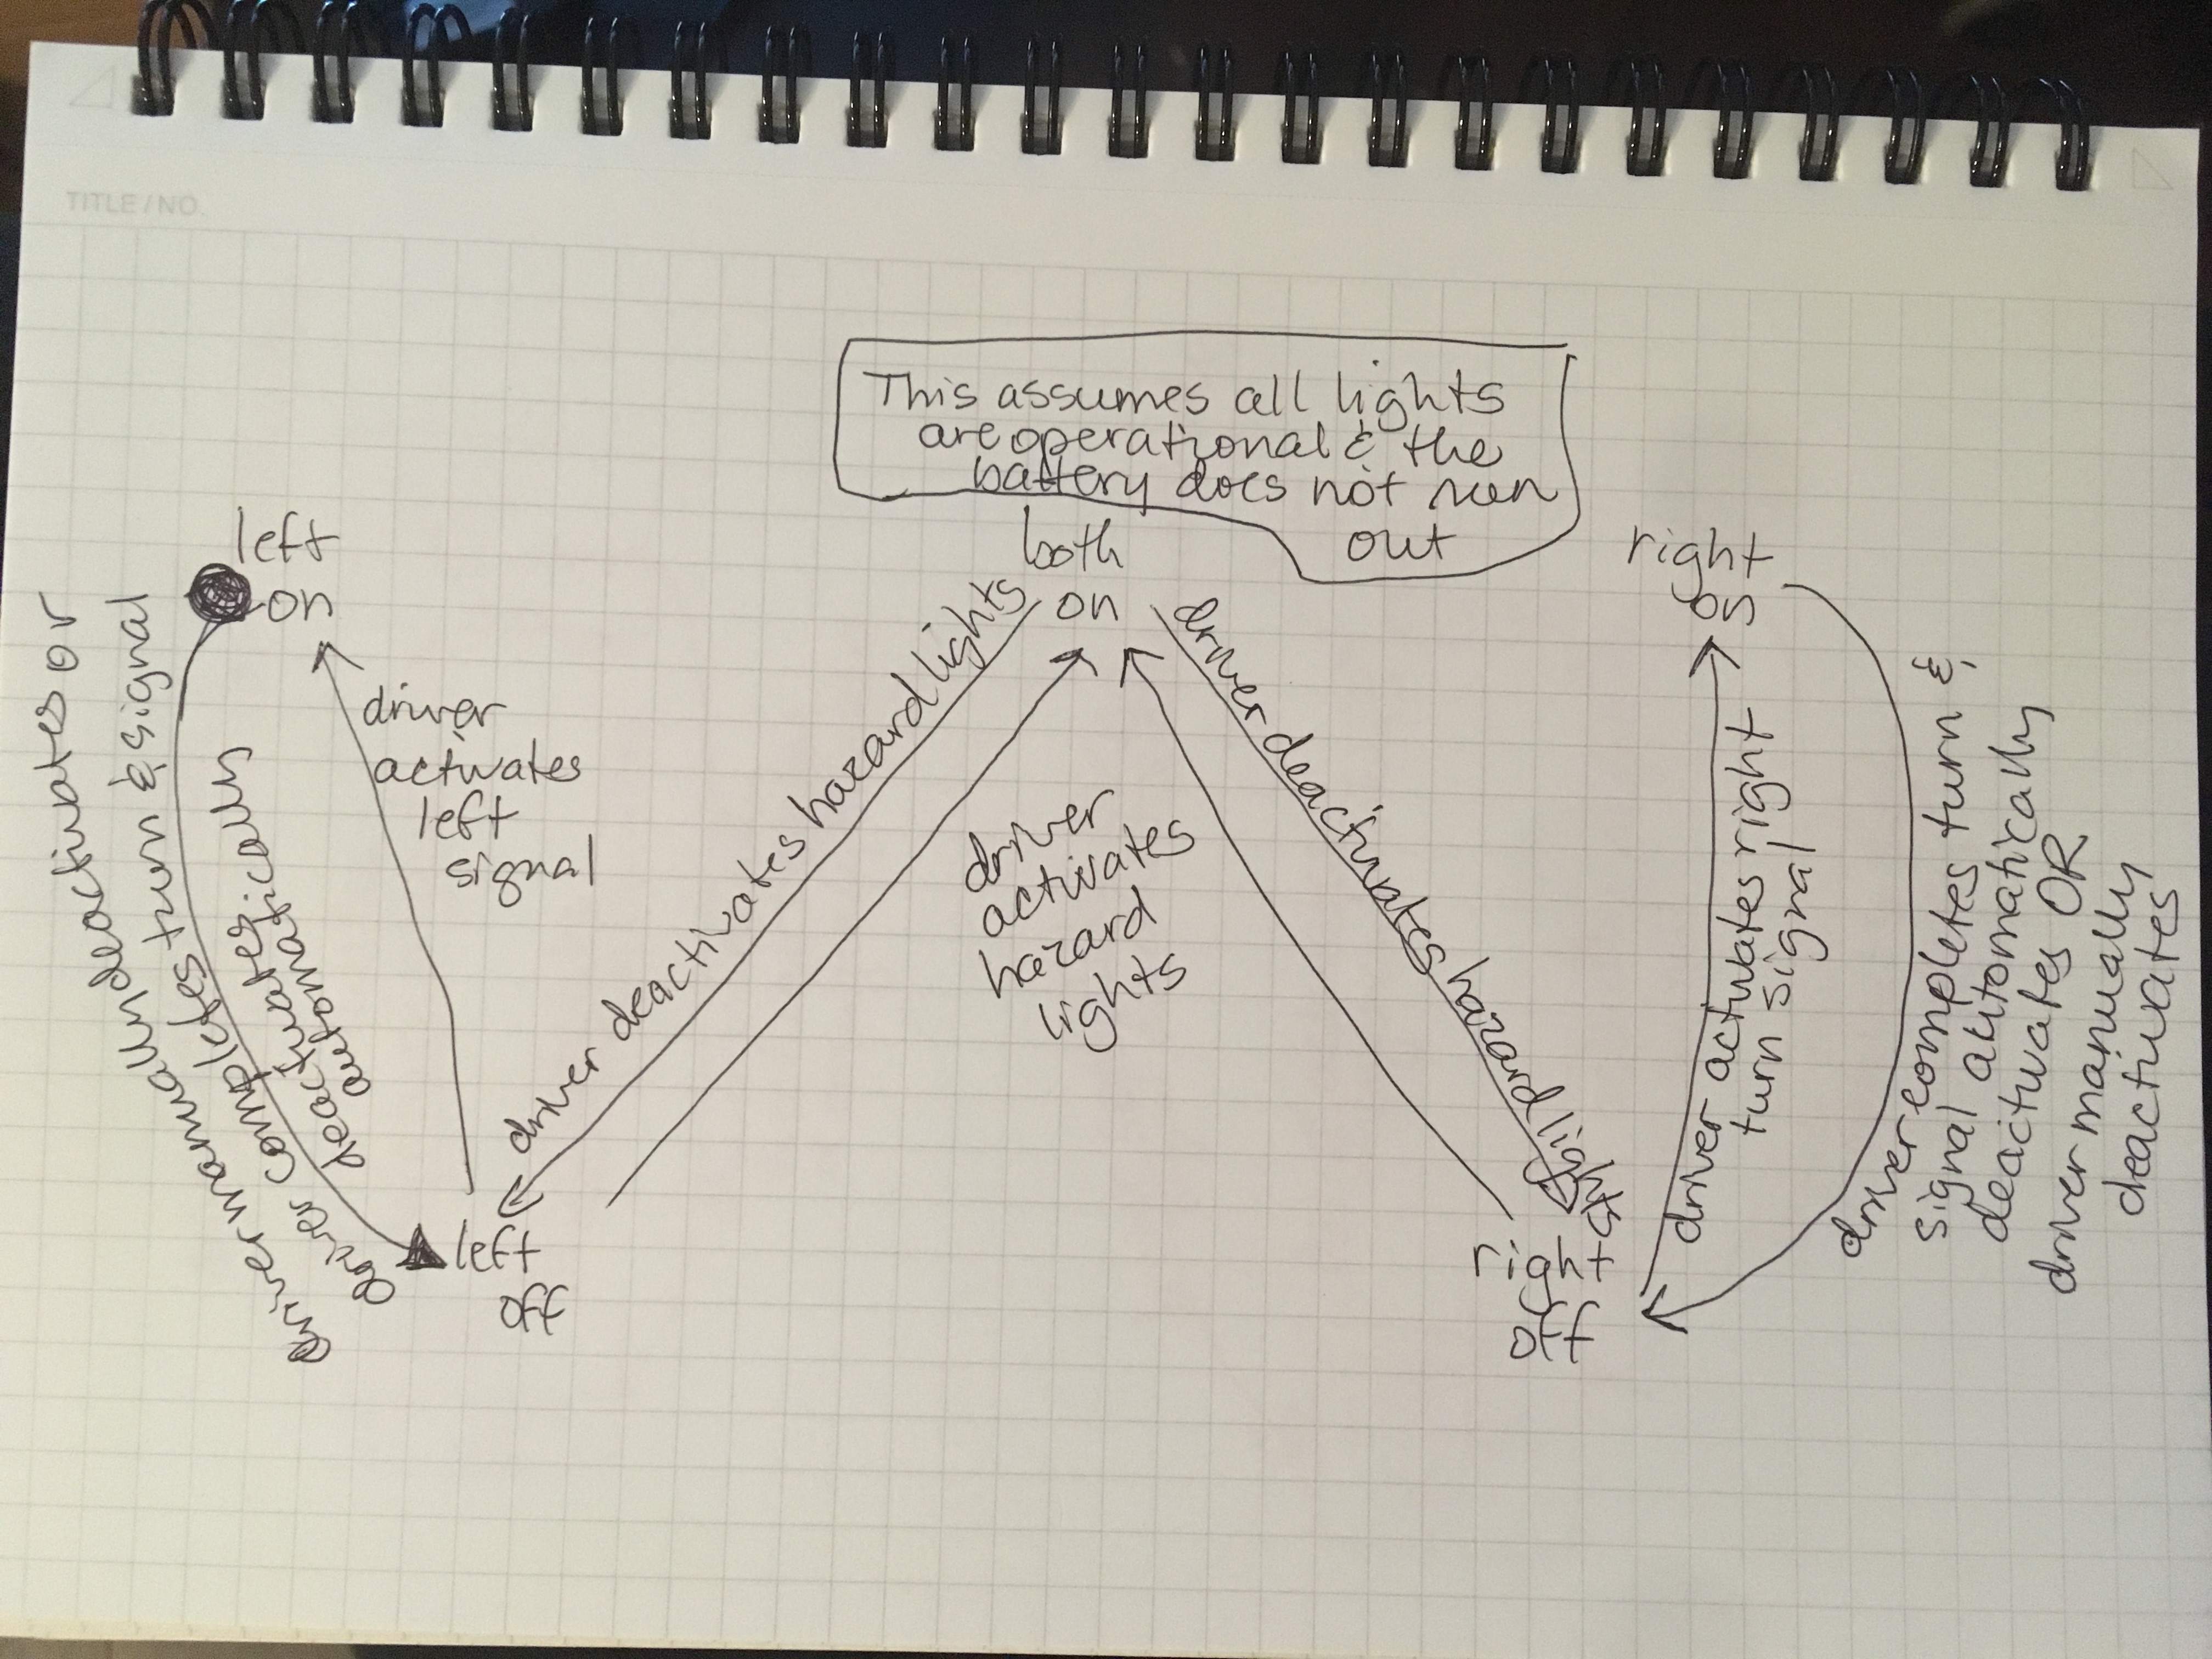 TITLE/NO.
This assumes all lights
are operational & the
battery does not run
out
left
on
driver manually deactivates or
driver completes turn & signal
deactivates
automatically
driver
activates
left
signal
left
off
driver deactivates hazard lights
both
on
driver
activates
hazard
lights
driver deactivates hazard lights
right
off
right
on
driver activates right
turn signal
driver completes turn &
signal automatically
deactivates OR
driver manually
deactivates